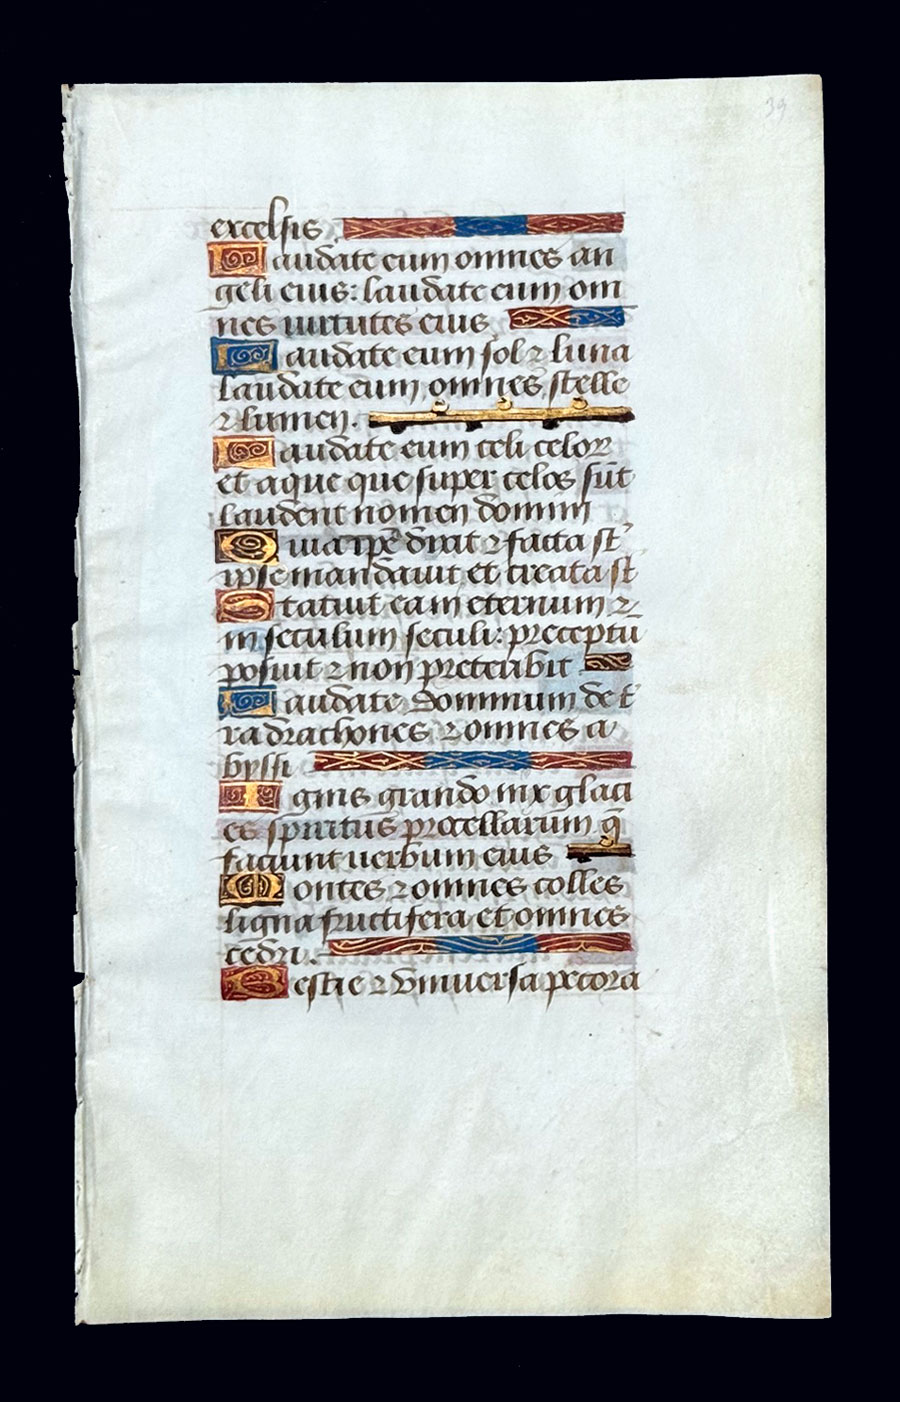 39
excelsis.
Laudate eum omnes an
geli eius: laudate eum om
nes uirtutes eius
Laudate eum sol ⁊ luna
laudate eum omnes stelle
⁊ lumen.
Laudate eum celi celoꝝ
et aque que super celos sūt
laudent nomen domini
Quia ip̄e dixit ⁊ facta st̄
ipse mandauit et creata st̄
Statuit ea in eternum ⁊
in seculum seculi: preceptū
posuit ⁊ non preteribit
Laudate Dominum de t̄
ra dracones ⁊ omnes a
byssi
Ignis grando nix glaci
es spiritus procellarum q̄
faciunt uerbum eius
Montes ⁊ omnes colles
ligna fructifera et omnes
cedri.
Bestie ⁊ vniuersa pecora